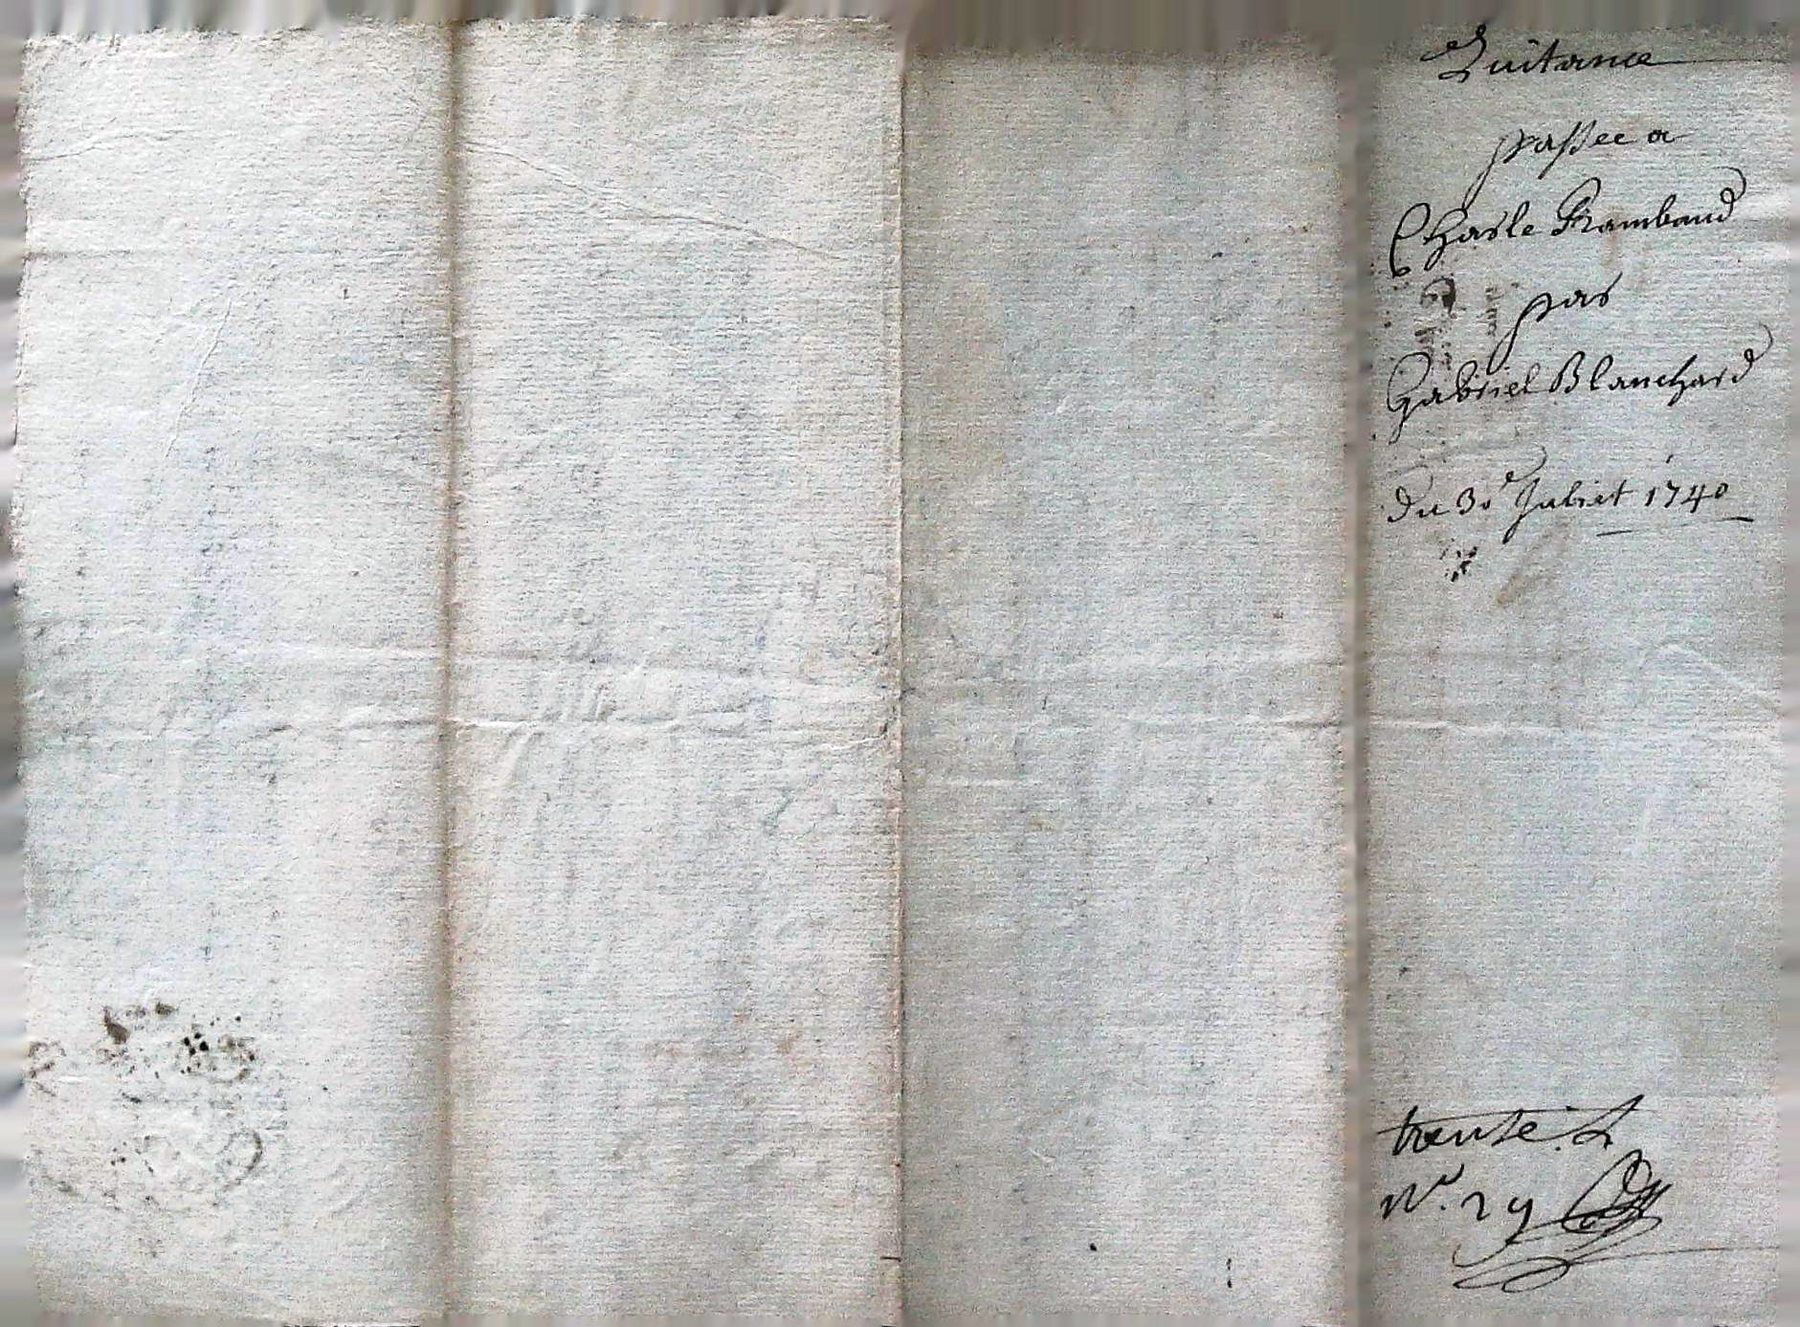 Quitance
passée a
Charle Rambaud
par
Gabriel Blanchard
du 30e Juliet 1740
trente
N°. 29